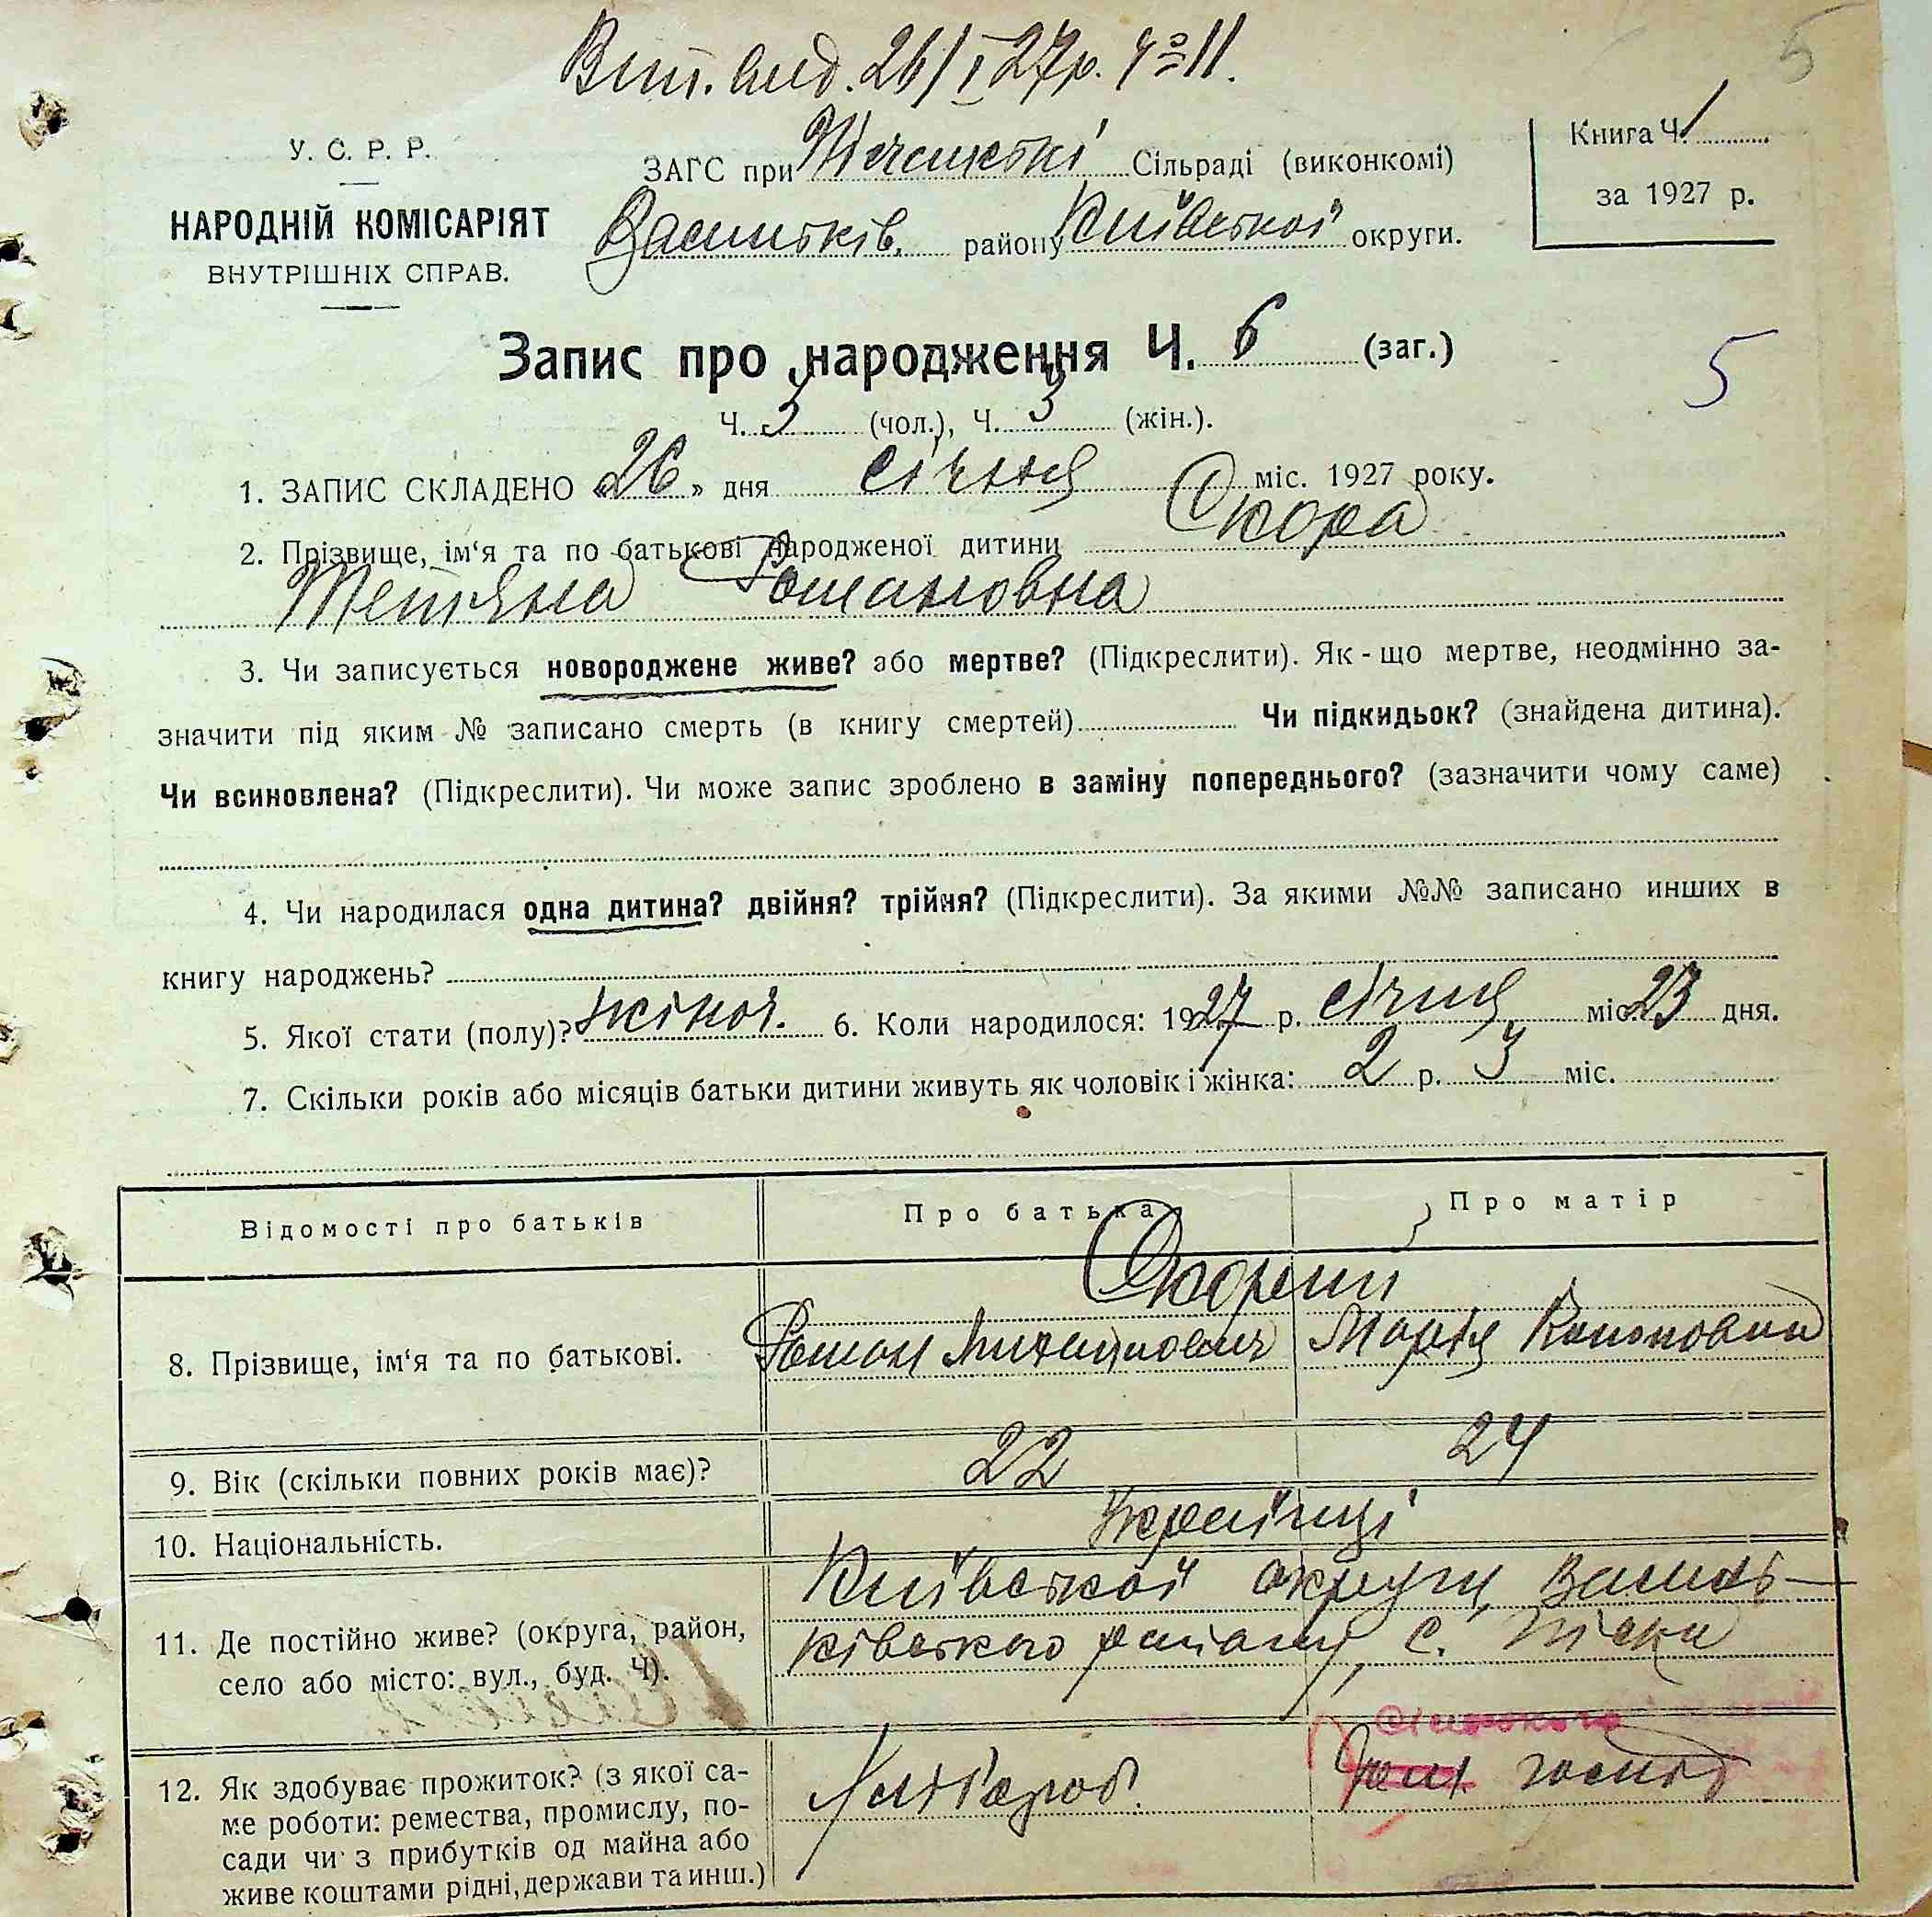 Вит. вид. 26/I 27р. Ч= 11.
5
У. С. Р. Р.
НАРОДНІЙ КОМІСАРІЯТ
ВНУТРІШНІХ СПРАВ.
ЗАГС при Піщанській Сільраді (виконкомі)
Васильків. району Київської округи.
Книга Ч. 1
за 1927 р.
Запис про народження Ч. 6 (заг.)
5
Ч. 3 (чол.), Ч. 3 (жін.).
1. ЗАПИС СКЛАДЕНО «26» дня січня міс. 1927 року.
2. Прізвище, ім‘я та по батькові народженої дитини Скора
Тетяна Романовна
3. Чи записується новороджене живе? або мертве? (Підкреслити). Як-що мертве, неодмінно за-
значити під яким № записано смерть (в книгу смертей) Чи підкидьок? (знайдена дитина).
Чи всиновлена? (Підкреслити). Чи може запис зроблено в заміну попереднього? (зазначити чому саме)
4. Чи народилася одна дитина? двійня? трійня? (Підкреслити). За якими №№ записано инших в
книгу народжень?
5. Якої стати (полу)? жіноч. 6. Коли народилося: 1927 р. січня міс. 23 дня.
7. Скільки років або місяців батьки дитини живуть як чоловік і жінка: 2 р. 3 міс.
Відомості про батьків Про батька Про матір
Скорий
8. Прізвище, ім‘я та по батькові. Роман Михайлович Марія Кононовна
9. Вік (скільки повних років має)? 22 24
10. Національність. Українці
11. Де постійно живе? (округа, район,
село або місто: вул., буд. Ч).
Київської округи, Василь-
ківського району, с. Піски
12. Як здобуває прожиток? (з якої са-
ме роботи: ремества, промислу, по-
сади чи з прибутків од майна або
живе коштами рідні, держави та инш.)
Хлібороб.
сільского
господ